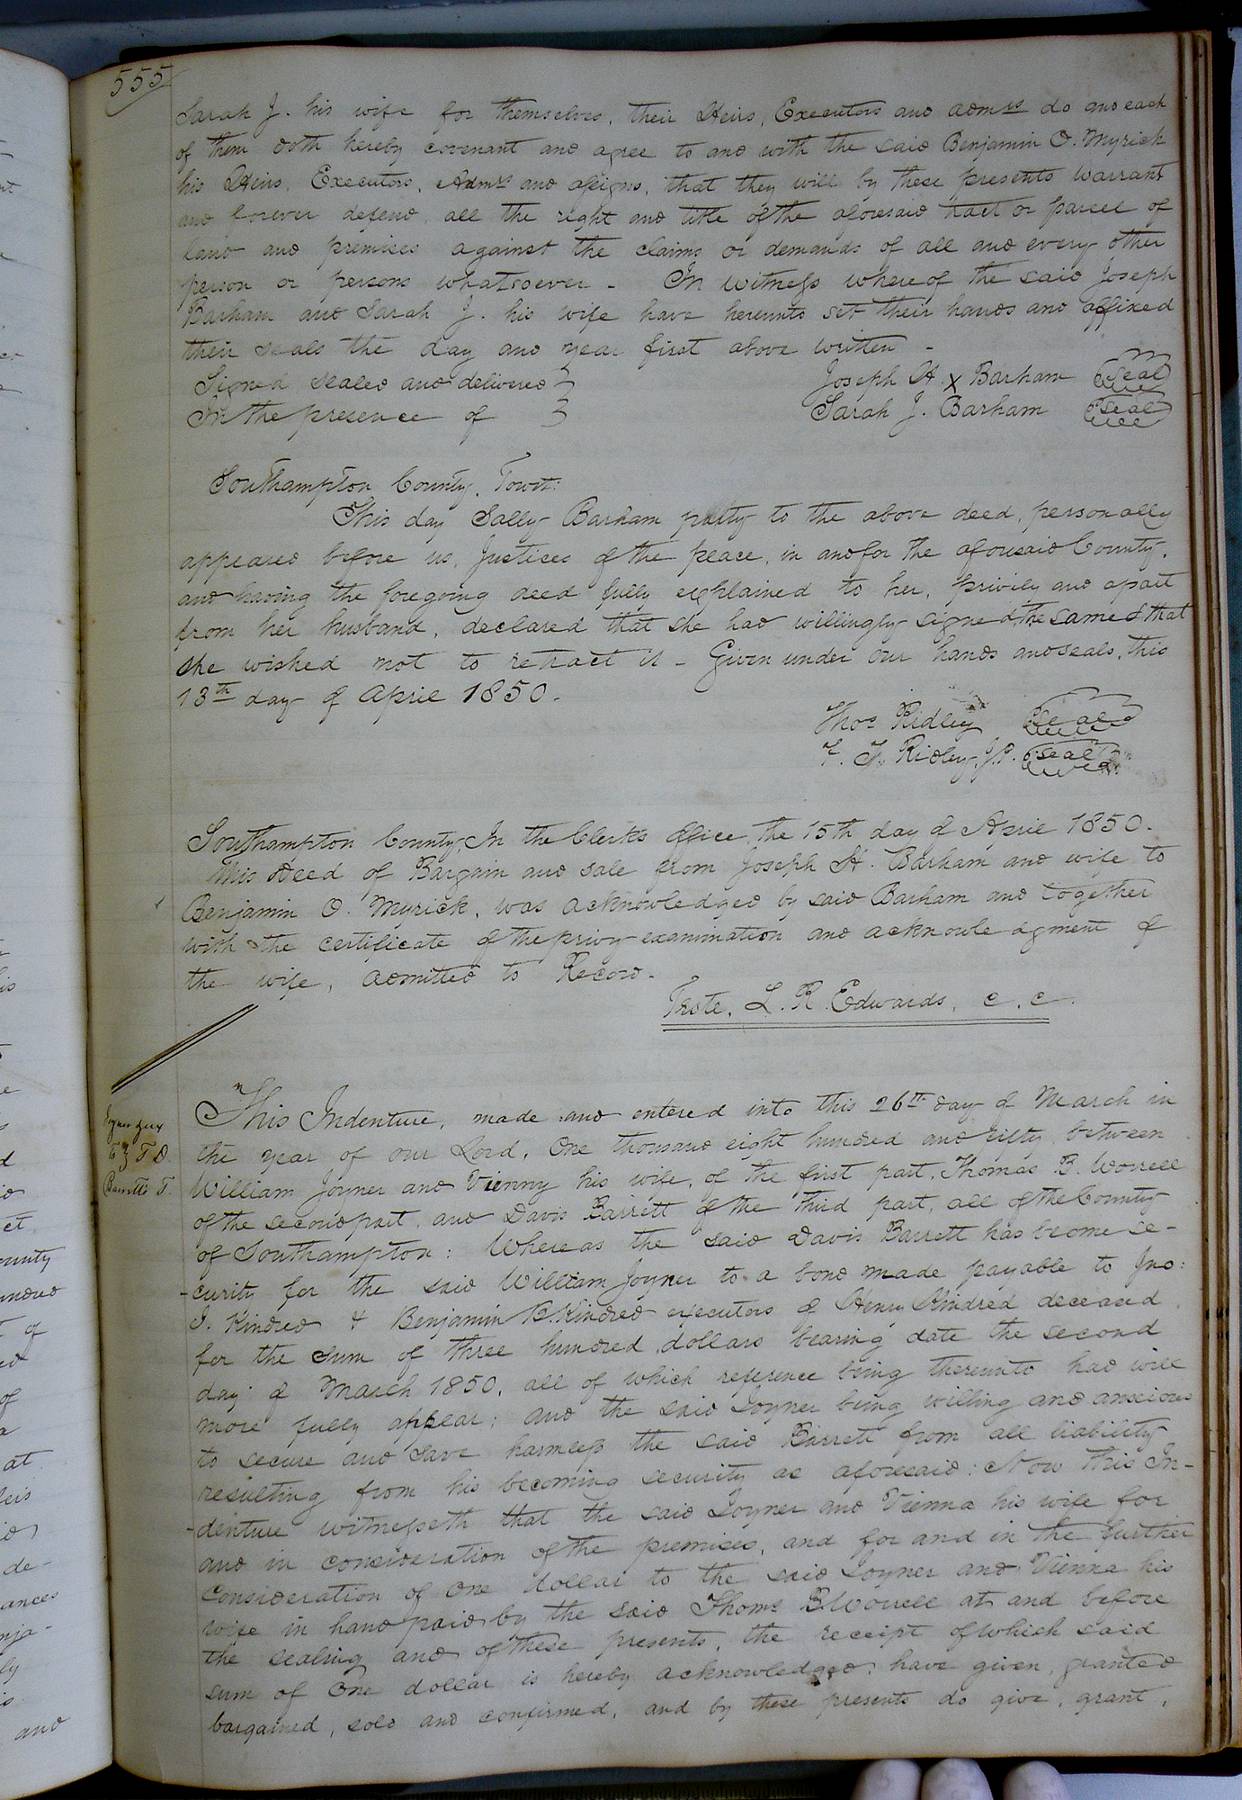 555
Sarah J. his wife for themselves, their Heirs, Executors and admrs do and each
of them doth hereby covenant and agree to and with the said Benjamin O. Myrick
his Heirs, Executors, Admrs and assigns, that they will by these presents warrant
and forever defend all the right and title of the aforesaid tract or parcel of
land and premises against the claims or demands of all and every other
person or persons whatsoever - In witness whereof the said Joseph
Barham and Sarah J. his wife have hereunto set their hands and affixed
their seals the day and year first above written -
Signed sealed and delivered } Joseph H. x Barham Seal
In the presence of } Sarah J. Barham Seal
Southampton County, Towit:
This day Sally Barham party to the above deed, personally
appeared before us, Justices of the peace, in and for the aforesaid County,
and having the foregoing deed fully explained to her, privily and apart
from her husband, declared that she had willingly signed the same & that
she wished not to retract it - Given under our hands and seals, this
13th day of April 1850.
Thos Ridley Seal
F. T. Ridley J.P. Seal
Southampton County, In the Clerk's Office, the 15th day of April 1850.
This Deed of Bargain and sale from Joseph H. Barham and wife to
Benjamin O. Myrick, was acknowledged by said Barham and together
with the certificate of the privy examination and acknowledgment of
the wife, admitted to Record.
Teste, L. R. Edwards, c. c.
Joyner & ux
to } T D
Barrett's T.
This Indenture, made and entered into this 26th day of March in
the year of our Lord, One thousand eight hundred and fifty between
William Joyner and Vienny his wife, of the first part, Thomas B. Worrell
of the second part, and Davis Barrett of the third part, all of the County
of Southampton: Whereas the said Davis Barrett has become se-
-curity for the said William Joyner to a bond made payable to Jno:
J. Kindred & Benjamin B Kindred executors of Henry Kindred deceased,
for the sum of three hundred dollars bearing date the second
day of March 1850, all of which reference being thereunto had will
more fully appear; and the said Joyner being willing and anxious
to secure and save harmless the said Barrett from all liability
resulting from his becoming security as aforesaid: Now this In-
-denture witnesseth that the said Joyner and Vienna his wife for
and in consideration of the premises, and for and in the further
consideration of One dollar to the said Joyner and Vienna his
wife in hand paid by the said Thoms B. Worrell at and before
the sealing and of these presents, the receipt of which said
sum of One dollar is hereby acknowledged; have given, granted
bargained, sold and confirmed, and by these presents do give, grant,